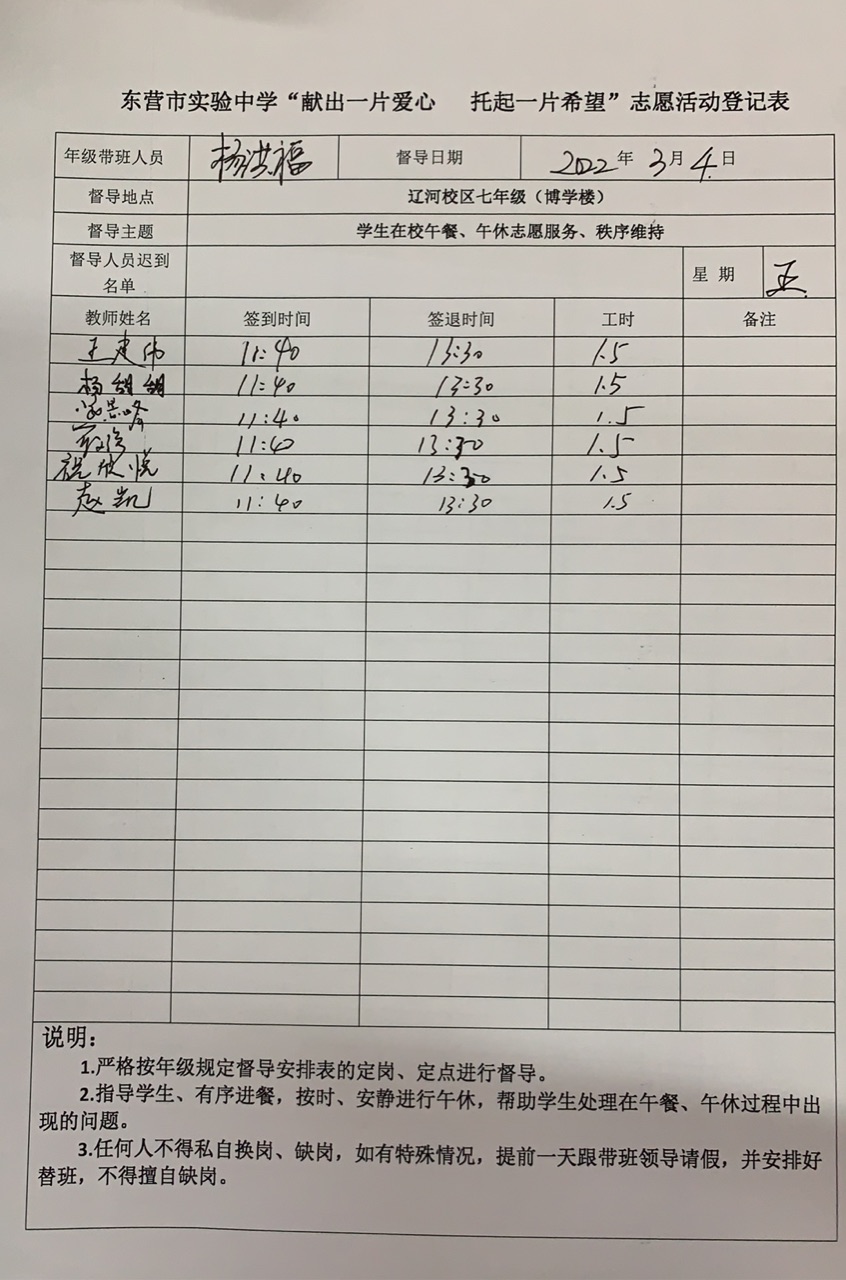 东营市实验中学“献出一片爱心 托起一片希望”志愿活动登记表
年级带班人员 杨洪福 督导日期 2022年3月4日
督导地点 辽河校区七年级（博学楼）
督导主题 学生在校午餐、午休志愿服务、秩序维持
督导人员迟到名单 星 期 五
教师姓名 签到时间 签退时间 工时 备注
王建伟 11:40 13:30 1.5
杨甜甜 11:40 13:30 1.5
11:40 13:30 1.5
11:40 13:30 1.5
祝欣悦 11:40 13:30 1.5
赵凯 11:40 13:30 1.5
说明：
1.严格按年级规定督导安排表的定岗、定点进行督导。
2.指导学生、有序进餐，按时、安静进行午休，帮助学生处理在午餐、午休过程中出
现的问题。
3.任何人不得私自换岗、缺岗，如有特殊情况，提前一天跟带班领导请假，并安排好
替班，不得擅自缺岗。